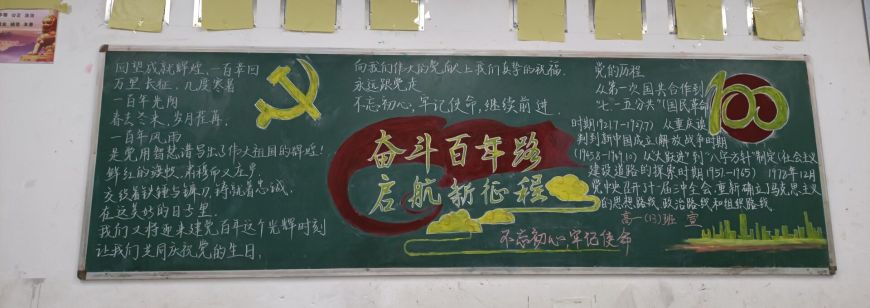 回望成就辉煌，一百年间
万里长征，几度寒暑
一百年光阴
春去冬来，岁月荏苒，
一百年风雨
是党用智慧谱写出了伟大祖国的辉煌！
鲜红的旗帜，
交织着铁锤与镰刀，铸就着忠诚，
在这美好的日子里，
我们又将迎来建党百年这个光辉时刻
让我们共同庆祝党的生日，
向我们伟大的党献上我们真挚的祝福，
永远跟党走
不忘初心，牢记使命，继续前进．
奋斗百年路
启航新征程
不忘初心，牢记使命
党的历程
从第一次国共合作到
"七·一五分共"（国民革命
时期1921.7-1927.7）从重庆谈
判到新中国成立（解放战争时期
（1945.8-1949.10）从"大跃进"到"八字方针"制定（社会主义
建设道路的探索时期1957-1965）1978年12月
党中央召开十一届三中全会，重新确立马克思主义
的思想路线，政治路线和组织路线．
高一（13）班 宣
100